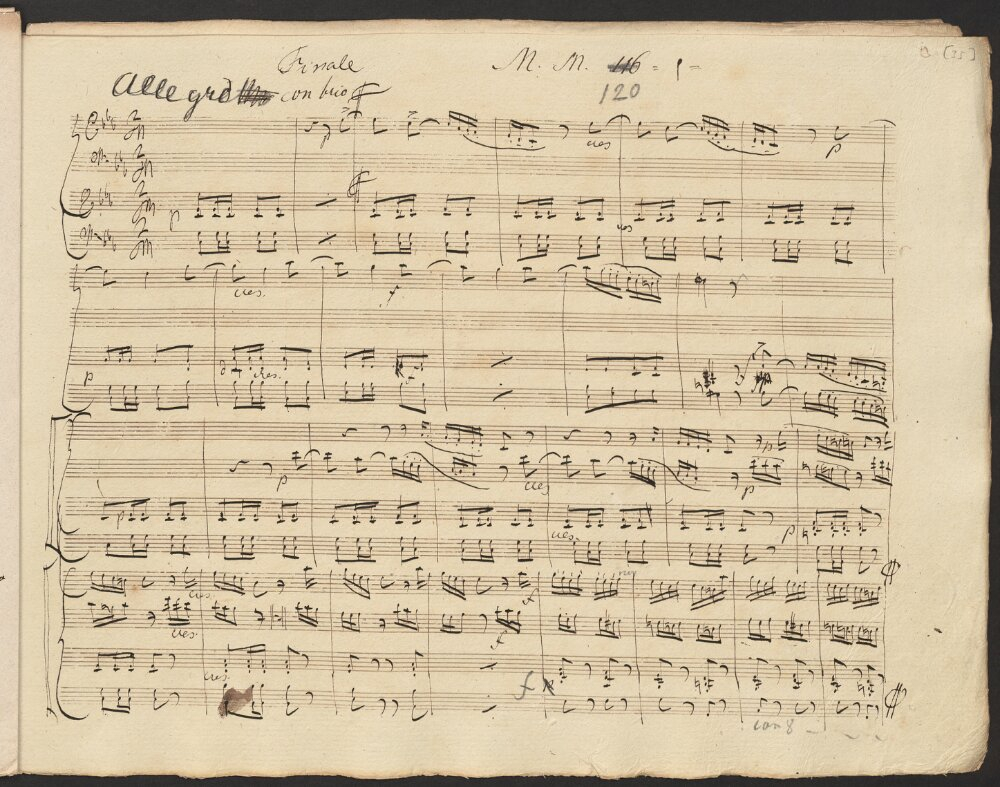 Finale M. M. 116 = 𝅘𝅥 =
Allegro con brio
120
p cres p
p cres
cres. f
p cres.
p cres p
p cres. p
cres. f
cres. f
cres. f
con 8